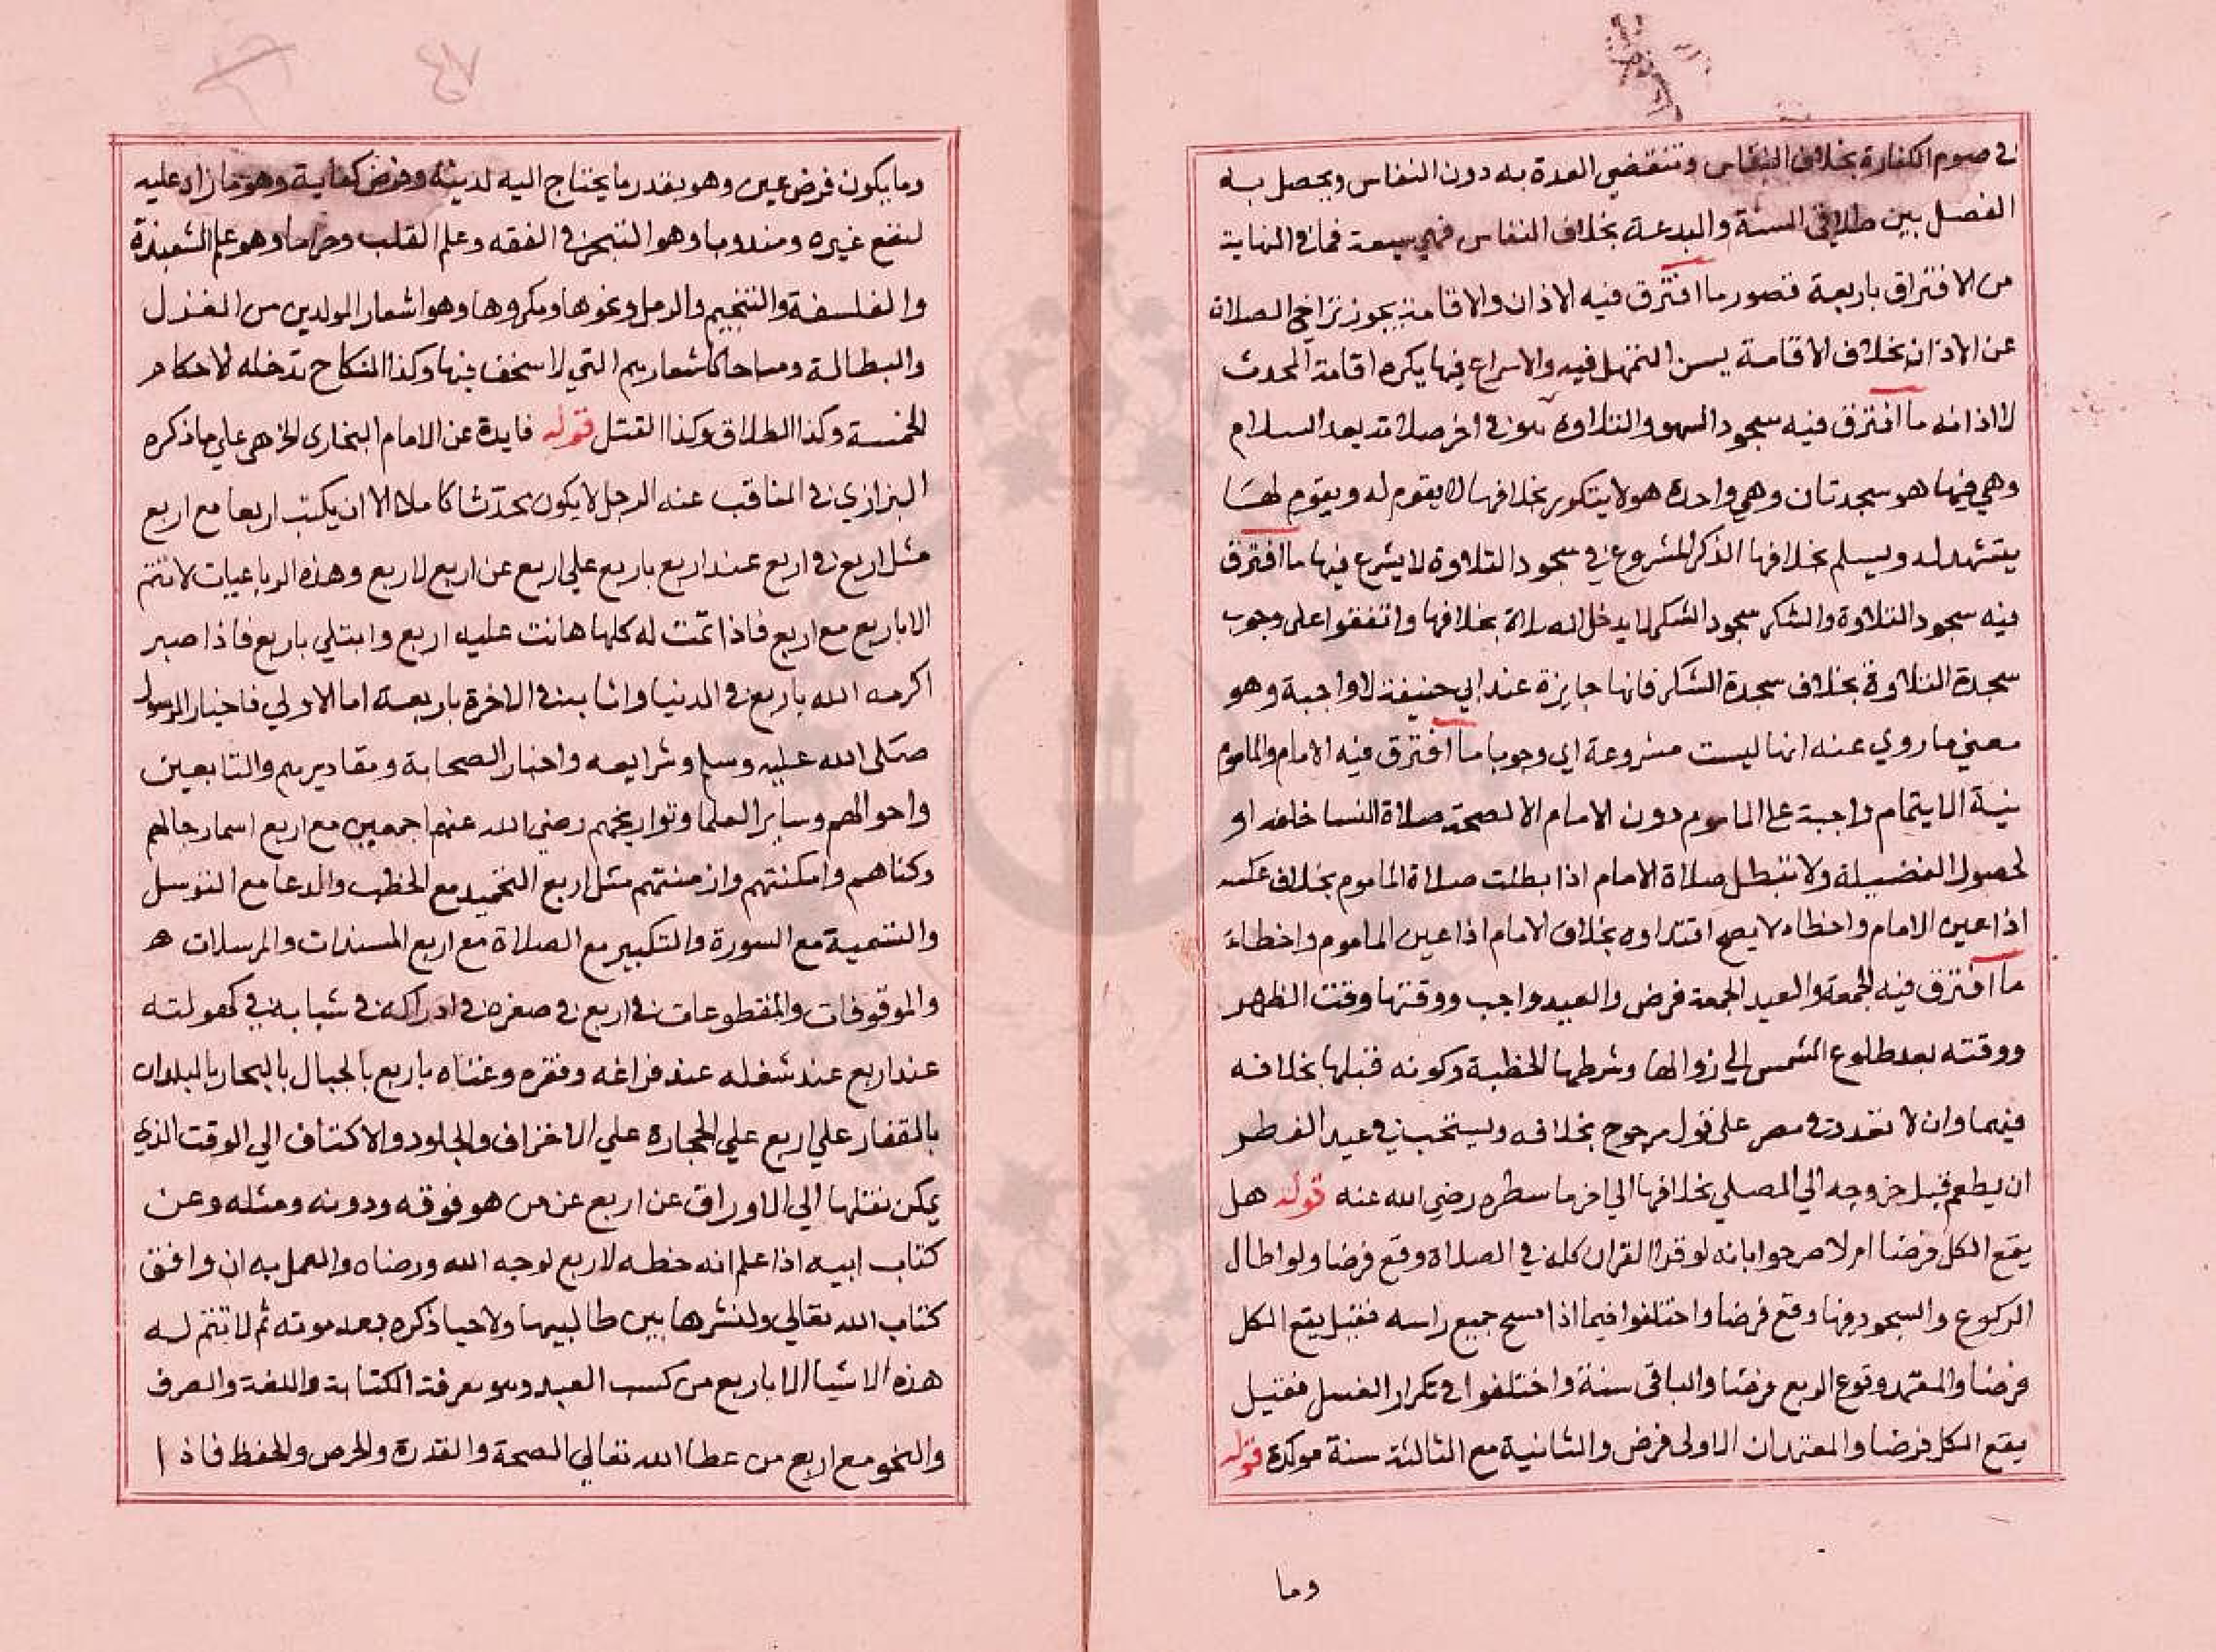 في صوم الكفارة بخلاف النفاس وتنقضي العدة به دون النفاس ويحصل به
الفصل بين طلاقي السنة والبدعة بخلاف النفاس فهي سبعة فما في النهاية
من الافتراق باربعة قصور ما افترق فيه الاذان والاقامة يجوز تراخي الصلاة
عن الاذان بخلاف الاقامة يسن التمهل فيه والاسراع فيها يكره اقامة المحدث
لا اذانه ما افترق فيه سجود السهو والتلاوة في اخر صلاته بعد السلام
وهي فيها هو سجدتان وهي واحدة هو لا يتكرر بخلافها لا يقوم له ويقوم لها
يتشهد له ويسلم بخلافها الذكر المشروع في سجود التلاوة لا يشرع فيها ما افترق
فيه سجود التلاوة والشكر سجود الشكر لا يدخل الصلاة بخلافها واتفقوا على وجوب
سجدة التلاوة بخلاف سجدة الشكر فانها جايزة عند ابي حنيفة لا واجبة وهو
معني ما روي عنه انها ليست مشروعة اي وجوبا ما افترق فيه الامام والماموم
نية الايتمام واجبة علي الماموم دون الامام الا لصحة صلاة النسا خلفه او
لحصول الفضيلة ولا تبطل صلاة الامام اذا بطلت صلاة الماموم بخلاف عكسه
اذا عين الامام واخطاء لا يصح اقتداوه بخلاف الامام اذا عين الماموم واخطاء
ما افترق فيه الجمعة والعيد الجمعة فرض والعيد واجب ووقتها وقت الظهر
ووقته بعد طلوع الشمس الي زوالها وشرطها الخطبة وكونه قبلها بخلافه
فيهما وان لا تعدد في مصر على قول مرجوح بخلافه ويستحب في عيد الفطر
ان يطعم قبل خروجه الي المصلي بخلافها الي اخر ما سطره رضي الله عنه قوله هل
يقع الكل فرضا ام لا صرحوا بانه لو قرا القران كله في الصلاة وقع فرضا ولو اطال
الركوع والسجود فيها وقع فرضا واختلفوا فيما اذا مسح جميع راسه فقيل يقع الكل
فرضا والمعتمد وقوع الربع فرضا والباقي سنة واختلفوا في تكرار الغسل فقيل
يقع الكل فرضا والمعتمد ان الاولى فرض والثانية مع الثالثة سنة موكدة قوله
وما
وما يكون فرض عين وهو بقدر ما يحتاج اليه لدينه وفرض كفاية وهو ما زاد عليه
لنفع غيره ومندوبا وهو التبحر في الفقه وعلم القلب وحراما وهو علم الشعبذة
والفلسفة والتنجيم والرمل ونحوها ومكروها وهو اشعار المولدين من الغزل
والبطالة ومباحا كاشعارهم التي لا سخف فيها وكذا النكاح تدخله الاحكام
الخمسة وكذا الطلاق وكذا القتل قوله فايدة عن الامام البخاري الخ هي علي ما ذكره
البزازي في المناقب عنه الرجل لا يكون محدثا كاملا الا ان يكتب اربعا مع اربع
مثل اربع في اربع عند اربع باربع علي اربع عن اربع لاربع وهذه الرباعيات لا تتم
الا باربع مع اربع فاذا تمت له كلها هانت عليه اربع وابتلي باربع فاذا صبر
اكرمه الله باربع في الدنيا واثابه في الاخرة باربعة اما الاولي فاخبار الرسول
صلى الله عليه وسلم وشرايعه واخبار الصحابة ومقاديرهم والتابعين
واحوالهم وساير العلما وتواريخهم رضي الله عنهم اجمعين مع اربع اسما رجالهم
وكناهم وامكنتهم وازمنتهم مثل اربع التحميد مع الخطب والدعا مع التوسل
والتسمية مع السورة والتكبير مع الصلاة مع اربع المسندات والمرسلات
والموقوفات والمقطوعات في اربع في صغره في ادراكه في شبابه في كهولته
عند اربع عند شغله عند فراغه وفقره وغناه باربع بالجبال بالبحار بالبلدان
بالقفار علي اربع علي الحجارة علي الاخزاف والجلود والاكتاف الي الوقت الذي
يمكن نقلها الي الاوراق عن اربع عن من هو فوقه ودونه ومثله وعن
كتاب ابيه اذا علم انه خطه لاربع لوجه الله ورضاه والعمل به ان وافق
كتاب الله تعالي ولنشرها بين طالبيها ولاحيا ذكره بعد موته ثم لا تتم له
هذه الاشيا الا باربع من كسب العبد وهو معرفة الكتابة واللغة والصرف
والنحو مع اربع من عطا الله تعالي الصحة والقدرة والحرص والحفظ فاذا